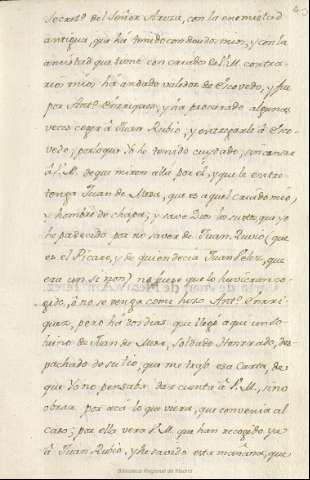 Secret.º del Señor Arriza, con la enemistad
antigua, que há tenido con deudos mios, y con la
amistad que tiene con criados de V. M. contra-
rios mios, há andado valedor de Escovedo, y fue
por Ant.º Enrriquez, y ha procurado algunas
veces coger á Juan Rubio, y entregarle á Esco-
vedo; por lo que Yo he tenido cuydado, sin cansar
á V. M. de que miren alla por él, y que lo entre-
tenga Juan de Mesa, que es aquel criado mio,
y hombre de chapa; y save Dios los sustos, que yo
he padecido por no saver de Juan Ruvio (que
es el Picaro, y de quien decia Juan Pelez, que
era un si non) no fuese que lo huvieran co-
gido, ó no se venga como hizo Ant.º Enrri-
quez, pero há dos dias que llegó aqui un So-
brino de Juan de Mesa, Soldado Honrrado, des-
pachado de su tio, que me trajo esa Carta, de
que Yo no pensaba dar cuenta á V. M., sino
obrar por acá lo que viera, que convenia al
caso; por ella vera V. M. que han recogido ya
á Juan Rubio, y he savido esta mañana, que
Biblioteca Regional de Madrid